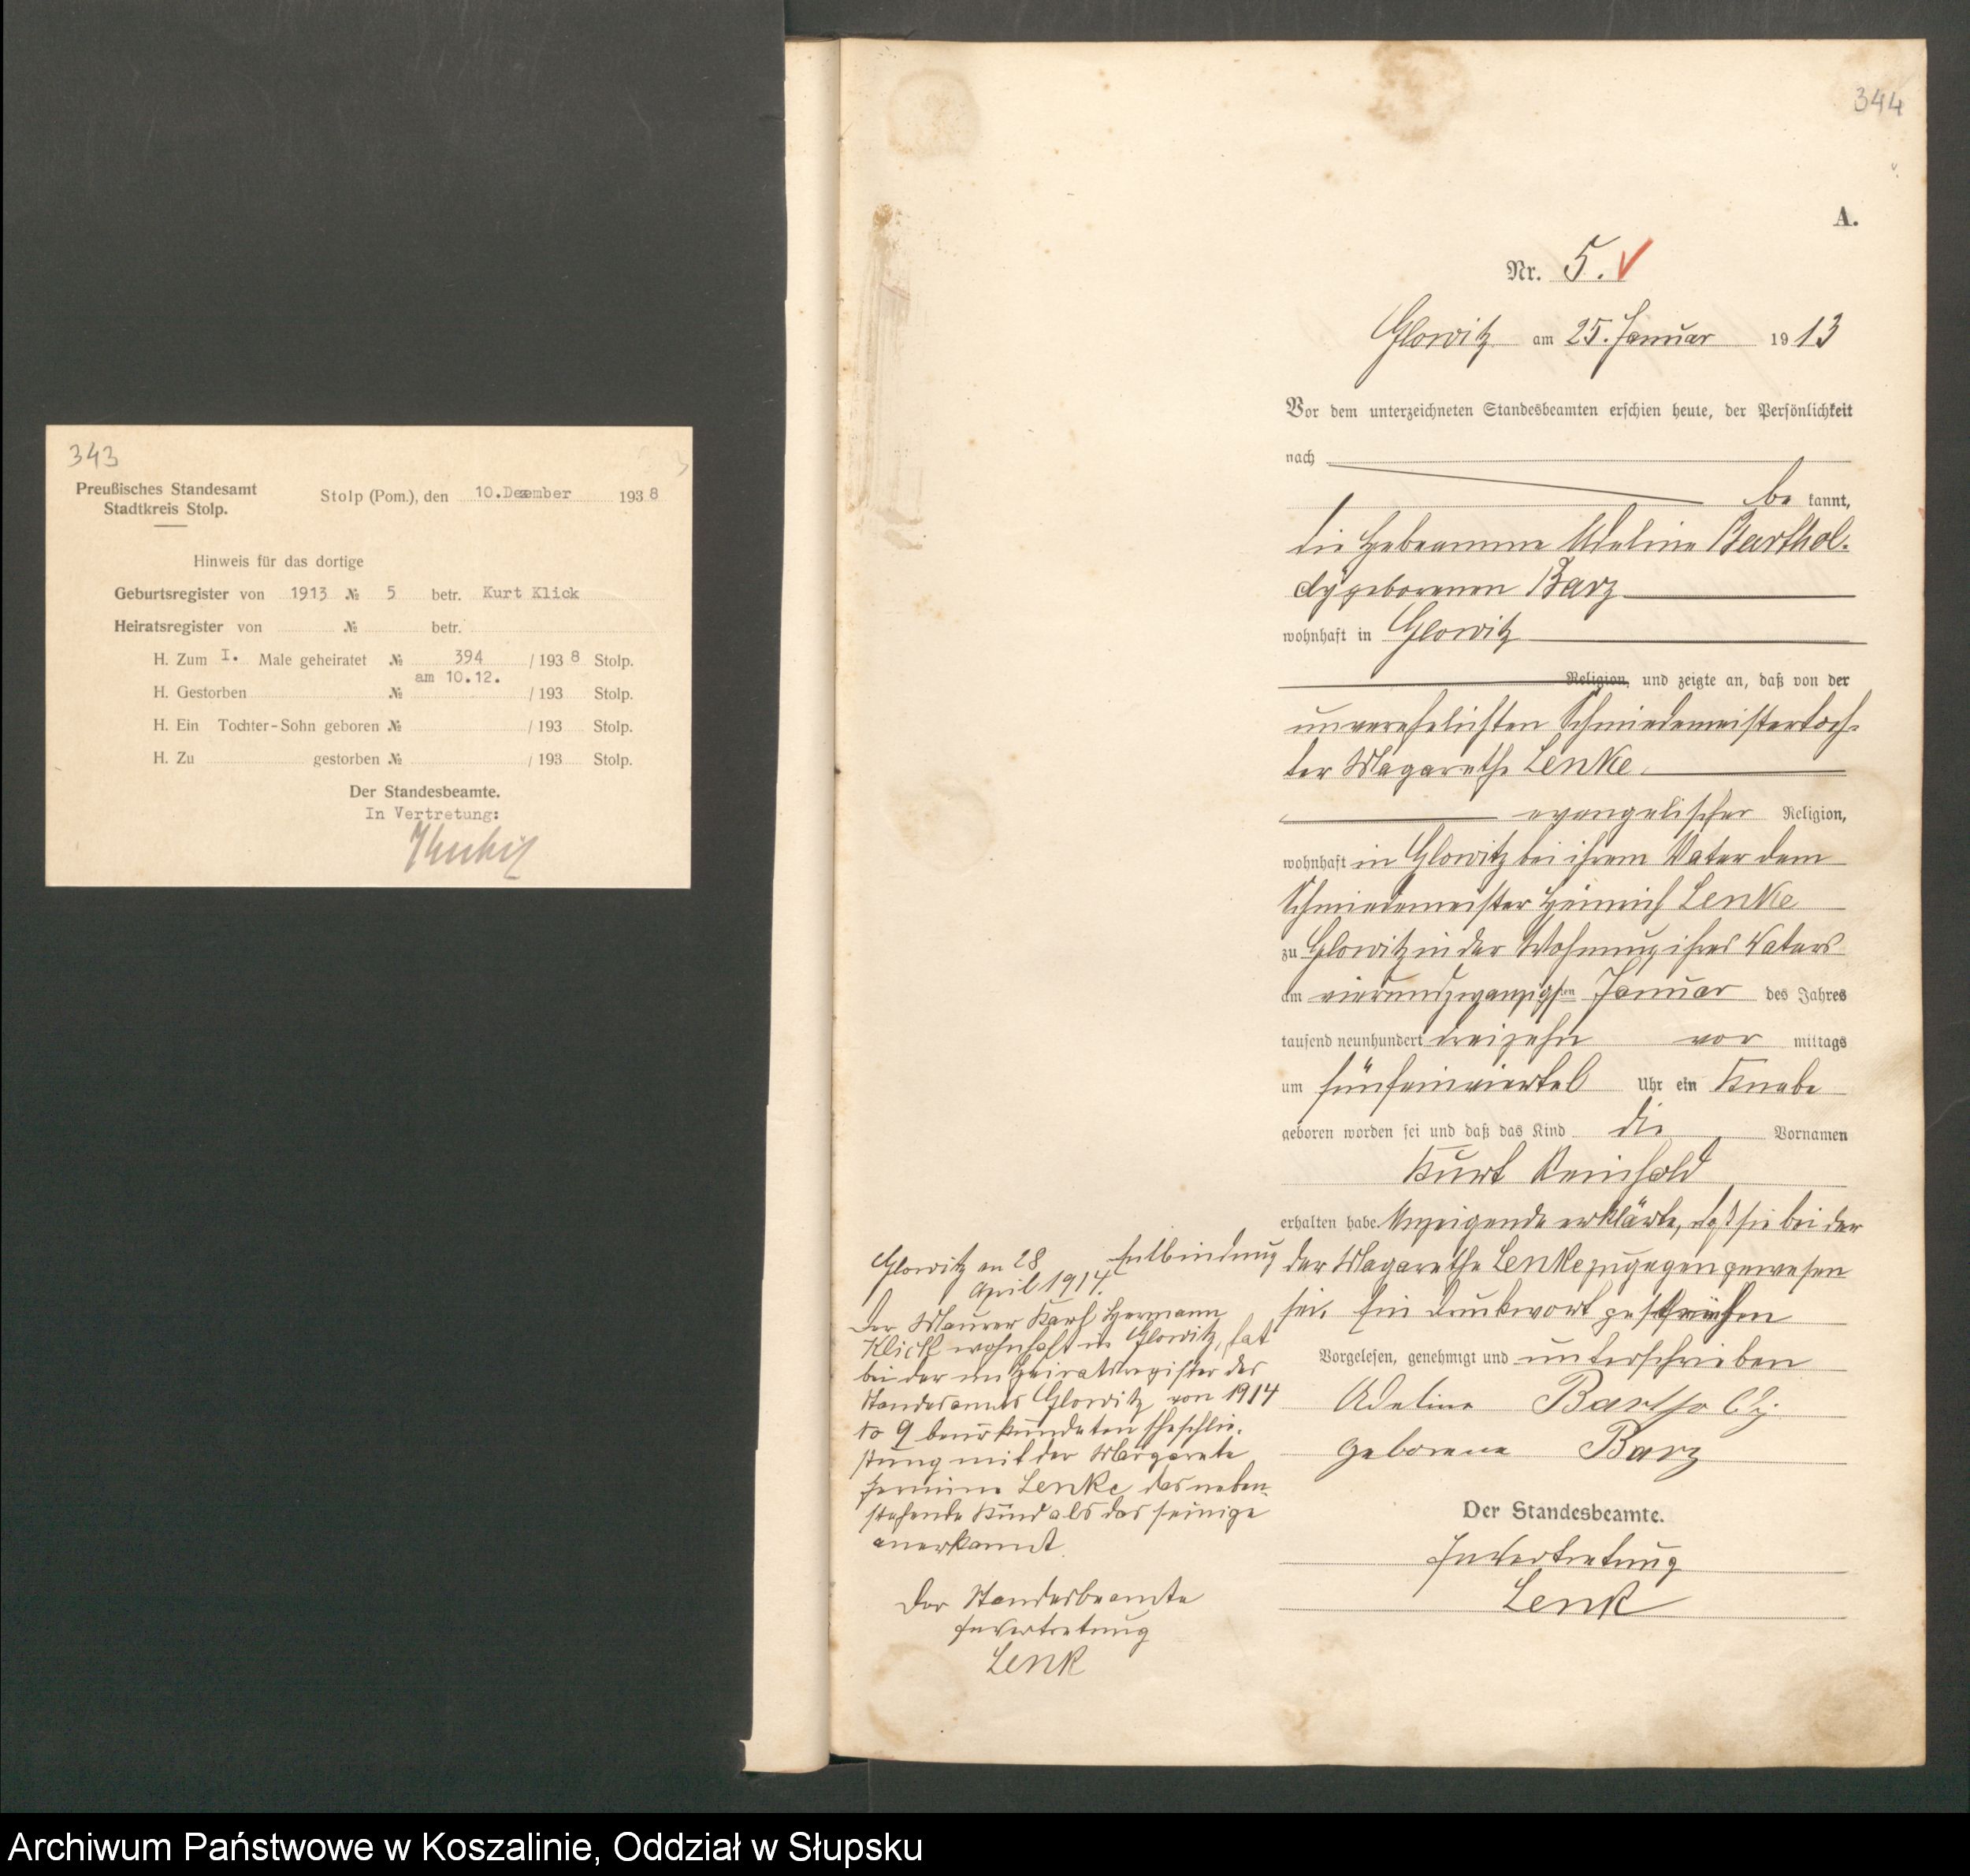 343
Preußisches Standesamt
Stadtkreis Stolp.
Stolp (Pom.), den 10.Dezember 1938
Hinweis für das dortige
Geburtsregister von 1913 № 5 betr. Kurt Klick
Heiratsregister von № betr.
H. Zum I. Male geheiratet № 394 / 1938 Stolp.
am 10.12.
H. Gestorben № / 193 Stolp.
H. Ein Tochter-Sohn geboren № / 193 Stolp.
H. Zu gestorben № / 193 Stolp.
Der Standesbeamte.
In Vertretung:
344
A.
Nr. 5.
Glowitz am 25. Januar 1913
Vor dem unterzeichneten Standesbeamten erschien heute, der Persönlichkeit
nach
be kannt,
die Hebeamme Adeline Barthol-
dy geborenen Barz
wohnhaft in Glowitz
Religion, und zeigte an, daß von der
unverehelichten Schmiedemeistertoch-
ter Magarethe Lenke
evangelischer Religion,
wohnhaft in Glowitz bei ihrem Vater dem
Schmiedemeister Heinrich Lenke
zu Glowitz in der Wohnung ihres Vaters
am vierundzwanzigsten Januar des Jahres
tausend neunhundert dreizehn vor mittags
um fünfeinviertel Uhr ein Knabe
geboren worden sei und daß das Kind die Vornamen
Kurt Reinhold
erhalten habe. Anzeigende erklärte, daß sie bei der
Entbindung der Magarethe Lenke zugegen gewesen
sei. Ein Druckwort gestrichen
Vorgelesen, genehmigt und unterschrieben
Adeline Bartholdy
geborene Barz
Der Standesbeamte.
In Vertretung
Lenk
Glowitz an 28
April 1914.
Der Maurer Karl Hermann
Klick wohnhaft in Glowitz, hat
bei der im Heiratsregister des
Standesamts Glowitz von 1914
No 9 beurkundeten Eheschlie-
ßung mit der Margarete
Lenke das neben-
stehende Kind als das seinige
anerkannt.
Der Standesbeamte
In Vertretung
Lenk
Archiwum Państwowe w Koszalinie, Oddział w Słupsku